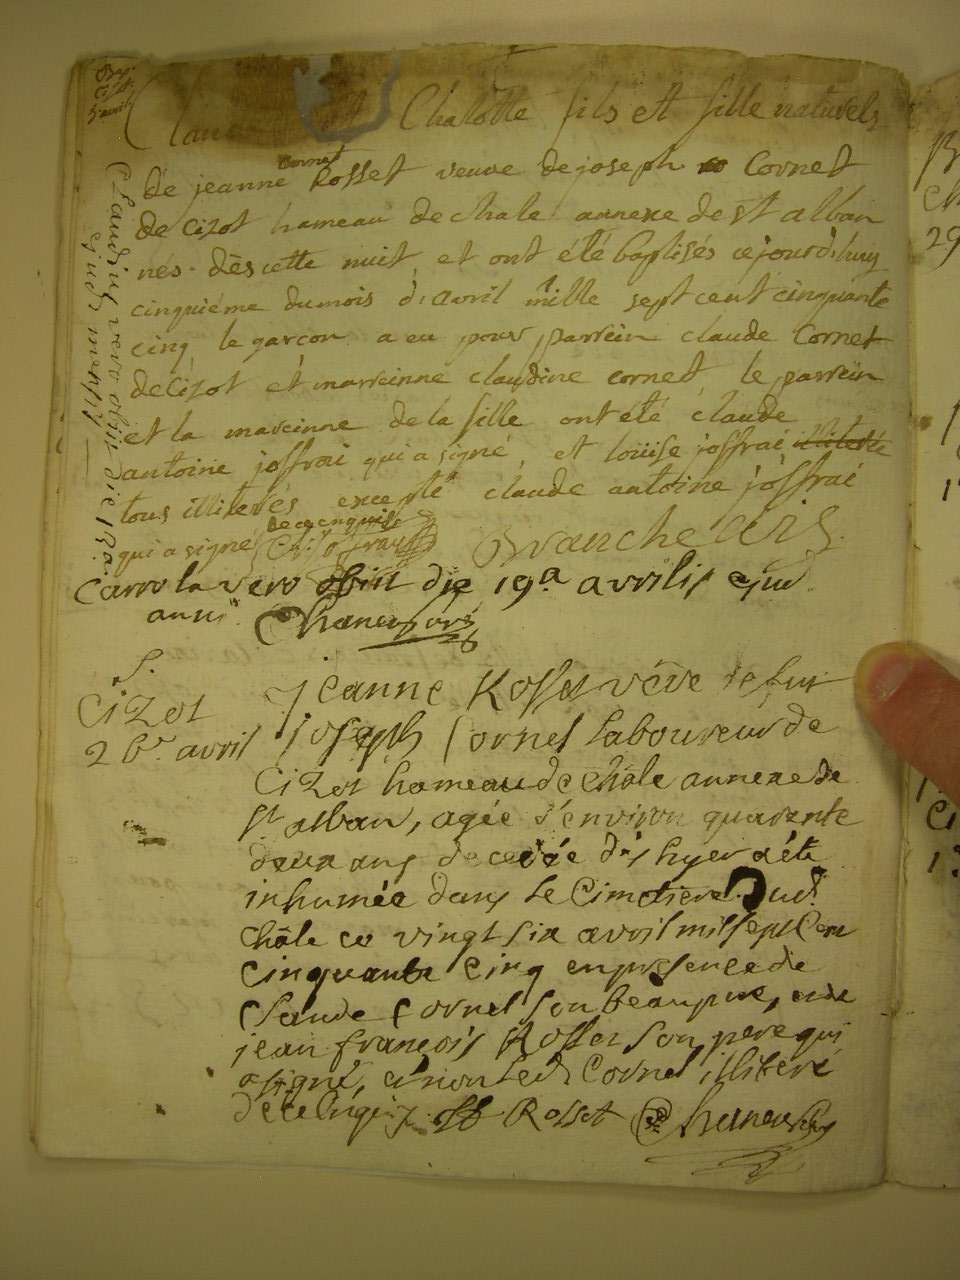 Bap.
Cizot
5 avril
Chalotte fils et fille naturels
cornet
de jeanne Rosset veuve de joseph Cornet
de Cizot hameau de chale annexe de st alban
nés dès cette nuit et ont été baptisés cejourd'huy
cinquiéme du mois d'avril mille sept cent cinquante
cinq, le garcon a eu pour parrein claude Cornet
de Cizot et marreinne claudine cornet, le parrein
et la mareinne de la fille ont été claude
antoine joffrai qui a signé, et louise joffrai illiterée
tous illiterés excepté claude antoine joffrai
de ce enquis
qui a signé
Claudius vero obiit die 13.a
ejusd mensis
Carrola vero obiit die 19.a avrilis ejud.
anni.
S.
Cizot
26.e avril
jeanne Rosset vëve de fut
joseph Cornet laboureur de
Cizot hameau de châle annexe de
st alban, agée d'environ quarante
deux ans decedée dès hyer a été
inhumée dans le Cimetiere dud.
châle ce vingt six avril mil sept Cent
cinquante cinq en presence de
Claude Cornet son beaupere, et de
jean françois Rosset son pere qui
a signé, et non led. Cornet illiteré
de ce enquis. Rosset